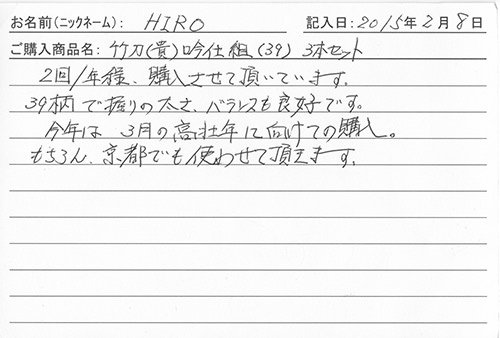 お名前(ニックネーム): HIRO 記入日: 2015年2月8日
ご購入商品名: 竹刀(貴)吟仕組(39) 3本セット
2回/年様、購入させて頂いています。
39柄で握りの太さ、バランスも良好です。
今年は3月の高壮年に向けての購入。
もちろん、京都でも使わせて頂きます。